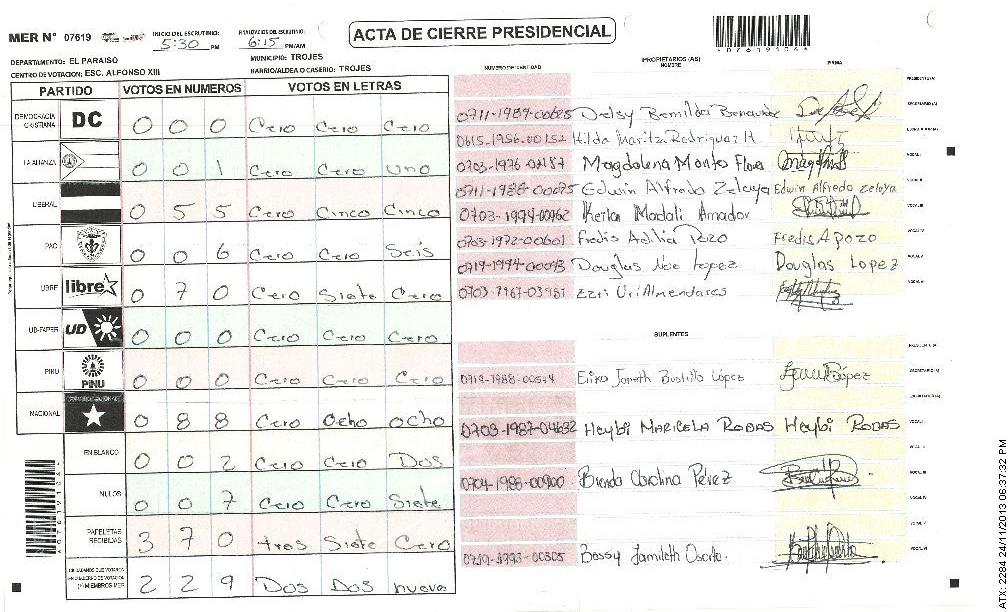 MER N° 07619 INICIO DEL ESCRUTINIO: 5:30 PM FINALIZACION DEL ESCRUTINIO: 6:15 PM/AM
ACTA DE CIERRE PRESIDENCIAL
DEPARTAMENTO: EL PARAISO MUNICIPIO: TROJES
CENTRO DE VOTACION: ESC. ALFONSO XIII BARRIO/ALDEA O CASERIO: TROJES
PARTIDO VOTOS EN NUMEROS VOTOS EN LETRAS
DEMOCRACIA CRISTIANA DC 0 0 0 Cero Cero Cero
LA ALIANZA 0 0 1 Cero Cero Uno
LIBERAL 0 5 5 Cero Cinco Cinco
PAC 0 0 6 Cero Cero Seis
LIBRE libre 0 7 0 Cero Siete Cero
UD-FAPER UD 0 0 0 Cero Cero Cero
PINU PINU 0 0 0 Cero Cero Cero
NACIONAL 0 8 8 Cero Ocho ocho
EN BLANCO 0 0 2 Cero Cero Dos
NULOS 0 0 7 Cero Cero Siete
PAPELETAS RECIBIDAS 3 7 0 tres Siete Cero
2 2 9 Dos Dos nueve
NUMERO DE IDENTIDAD PROPIETARIOS (AS) NOMBRE FIRMA
PRESIDENTE(A)
0711-1987-00625 Delsy Bemilda SECRETARIO(A)
0615-1956-00152 Hilda Maritza Rodriguez H
Magdalena VOCAL I
0711-1988-00075 Edwin Alfredo Zelaya Edwin Alfredo Zelaya VOCAL II
0703-1994-00962 Keila Madali Amador VOCAL III
0703-1972-00601 Fredis Pozo Fredis A Pozo VOCAL IV
Douglas Lopez Douglas Lopez VOCAL V
Uri Almendares VOCAL VI
SUPLENTES
PRESIDENTE(A)
Erika Janeth Bustillo López López SECRETARIO(A)
0703-1987-04632 Heybi MARICELA RODAS Heybi RODAS VOCAL I
VOCAL II
0704-1988-00900 Brenda Carolina Pérez VOCAL III
VOCAL IV
VOCAL V
0719-1993-00305 Bessy Jamileth VOCAL VI
*07619104*
*07619104*
ATX: 2284 24/11/2013 06:37:32 PM